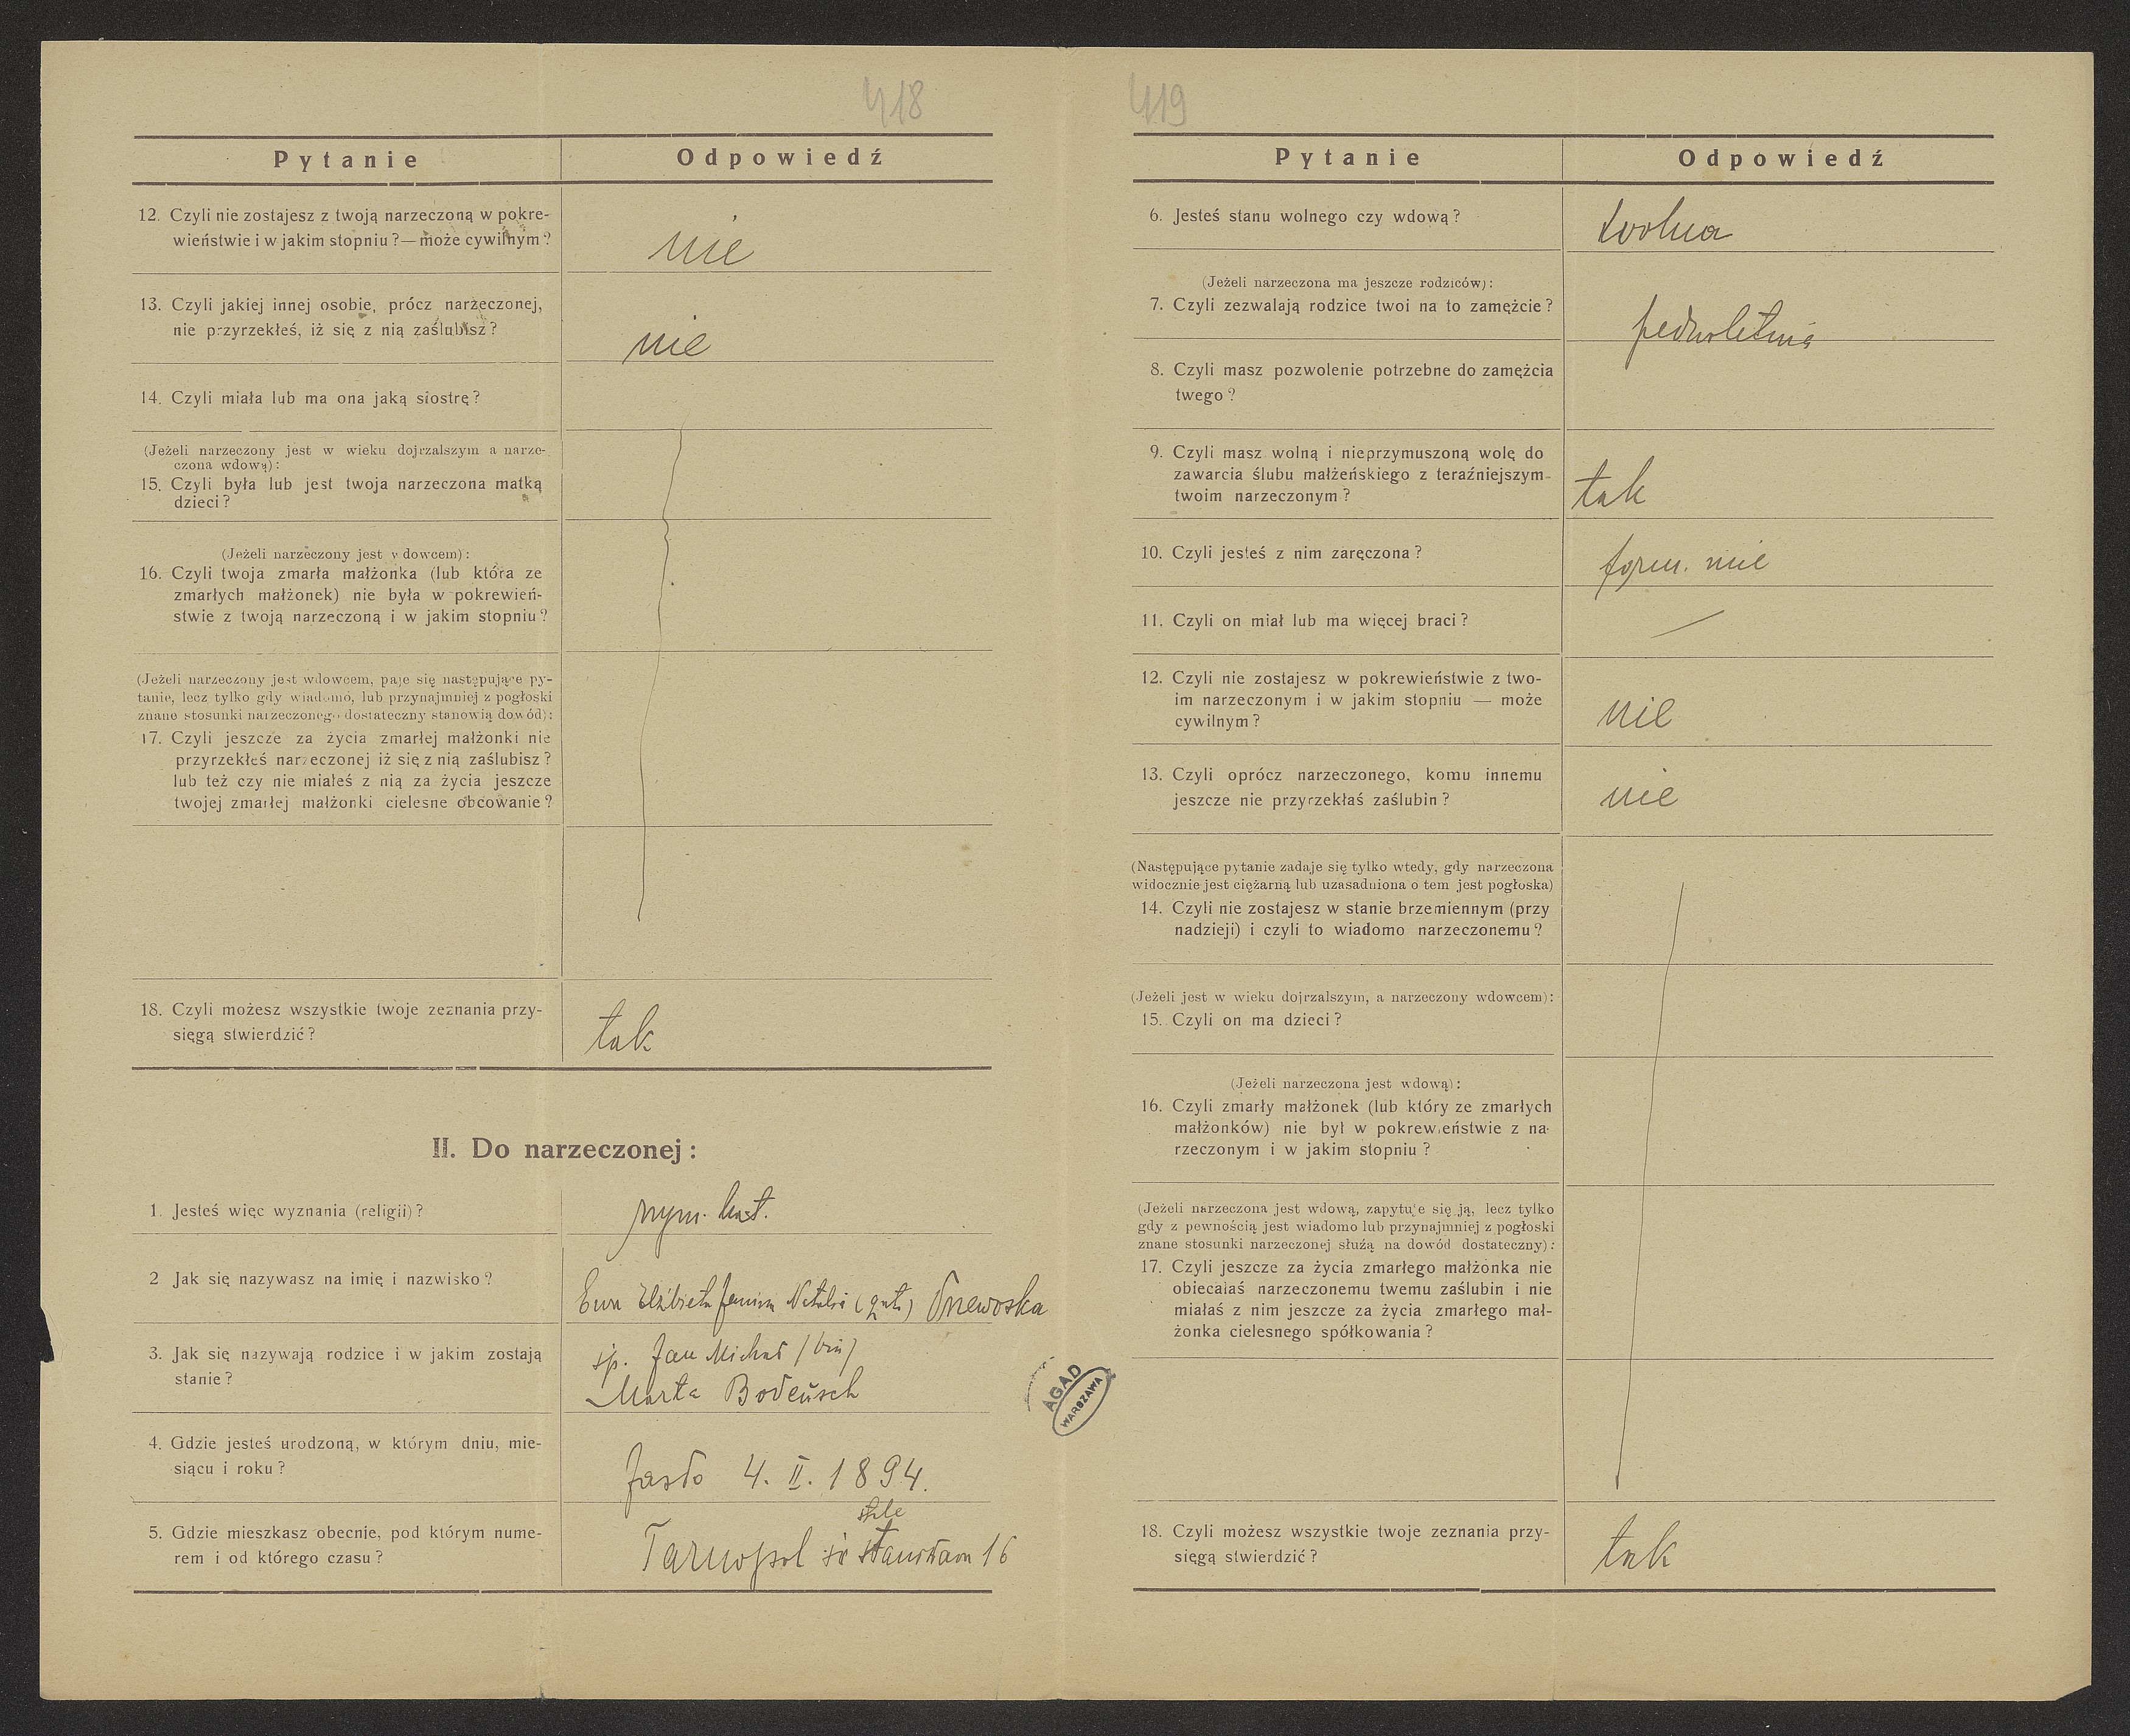 418
Pytanie Odpowiedź
12. Czyli nie zostajesz z twoją narzeczoną w pokre-
wieństwie i w jakim stopniu?—może cywilnym?
nie
13. Czyli jakiej innej osobie, prócz narzeczonej,
nie przyrzekłeś, iż się z nią zaślubisz?
nie
14. Czyli miała lub ma ona jaką siostrę?
(Jeżeli narzeczony jest w wieku dojrzalszym a narze-
czona wdową):
15. Czyli była lub jest twoja narzeczona matką
dzieci?
(Jeżeli narzeczony jest wdowcem):
16. Czyli twoja zmarła małżonka (lub która ze
zmarłych małżonek) nie była w pokrewień-
stwie z twoją narzeczoną i w jakim stopniu?
(Jeżeli narzeczony jest wdowcem, paje się następujące py-
tanie, lecz tylko gdy wiadomo, lub przynajmniej z pogłoski
znane stosunki narzeczonego dostateczny stanowią dowód):
17. Czyli jeszcze za życia zmarłej małżonki nie
przyrzekłeś narzeczonej iż się z nią zaślubisz?
lub też czy nie miałeś z nią za życia jeszcze
twojej zmarłej małżonki cielesne obcowanie?
18. Czyli możesz wszystkie twoje zeznania przy-
sięgą stwierdzić?
tak
II. Do narzeczonej:
1. Jesteś więc wyznania (religii)?
rzym. kat.
2 Jak się nazywasz na imię i nazwisko?
Ewa Elżbieta Janina Natalia
3. Jak się nazywają rodzice i w jakim zostają
stanie?
śp. Jan Michał
Marta
4. Gdzie jesteś urodzoną, w którym dniu, mie-
siącu i roku?
Jasło 4. II. 1894.
5. Gdzie mieszkasz obecnie, pod którym nume-
rem i od którego czasu?
stale
Tarnopol św Stanisława 16
419
Pytanie Odpowiedź
6. Jesteś stanu wolnego czy wdową?
wolna
(Jeżeli narzeczona ma jeszcze rodziców):
7. Czyli zezwalają rodzice twoi na to zamężcie?
pełnoletnia
8. Czyli masz pozwolenie potrzebne do zamężcia
twego?
9. Czyli masz wolną i nieprzymuszoną wolę do
zawarcia ślubu małżeńskiego z teraźniejszym-
twoim narzeczonym?
tak
10. Czyli jesteś z nim zaręczona?
form. nie
11. Czyli on miał lub ma więcej braci?
12. Czyli nie zostajesz w pokrewieństwie z two-
im narzeczonym i w jakim stopniu — może
cywilnym?
nie
13. Czyli oprócz narzeczonego, komu innemu
jeszcze nie przyrzekłaś zaślubin?
nie
(Następujące pytanie zadaje się tylko wtedy, gdy narzeczona
widocznie jest ciężarną lub uzasadniona o tem jest pogłoska)
14. Czyli nie zostajesz w stanie brzemiennym (przy
nadzieji) i czyli to wiadomo narzeczonemu?
(Jeżeli jest w wieku dojrzalszym, a narzeczony wdowcem):
15. Czyli on ma dzieci?
(Jeżeli narzeczona jest wdową):
16. Czyli zmarły małżonek (lub który ze zmarłych
małżonków) nie był w pokrewieństwie z na-
rzeczonym i w jakim stopniu?
(Jeżeli narzeczona jest wdową, zapytuje się ją, lecz tylko
gdy z pewnością jest wiadomo lub przynajmniej z pogłoski
znane stosunki narzeczonej służą na dowód dostateczny):
17. Czyli jeszcze za życia zmarłego małżonka nie
obiecałaś narzeczonemu twemu zaślubin i nie
miałaś z nim jeszcze za życia zmarłego mał-
żonka cielesnego spółkowania?
18. Czyli możesz wszystkie twoje zeznania przy-
sięgą stwierdzić?
tak
AGAD
WARSZAWA